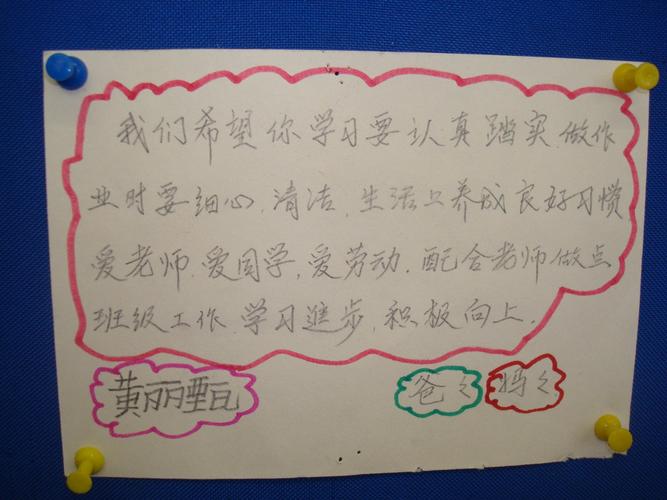 我们希望你学习要认真踏实.做作
业时要细心.清洁.生活上养成良好习惯
爱老师.爱同学.爱劳动.配合老师做点
班级工作.学习進步.积极向上.
黄丽甄 爸々 妈々